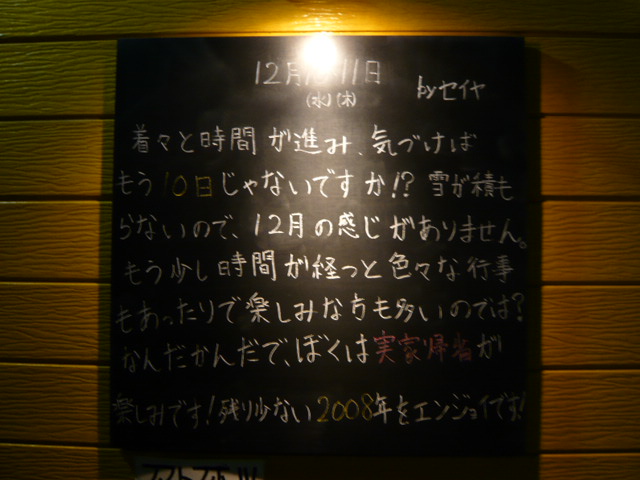 12月 11日
(水)(木)
byセイヤ
着々と時間が進み、気づけば
もう10日じゃないですか!?雪が積も
らないので、12月の感じがありません。
もう少し時間が経っと色々な行事
もあったりで楽しみな方も多いのでは?
なんだかんだで、ぼくは実家帰省が
楽しみです!残り少ない2008年をエンジョイです!